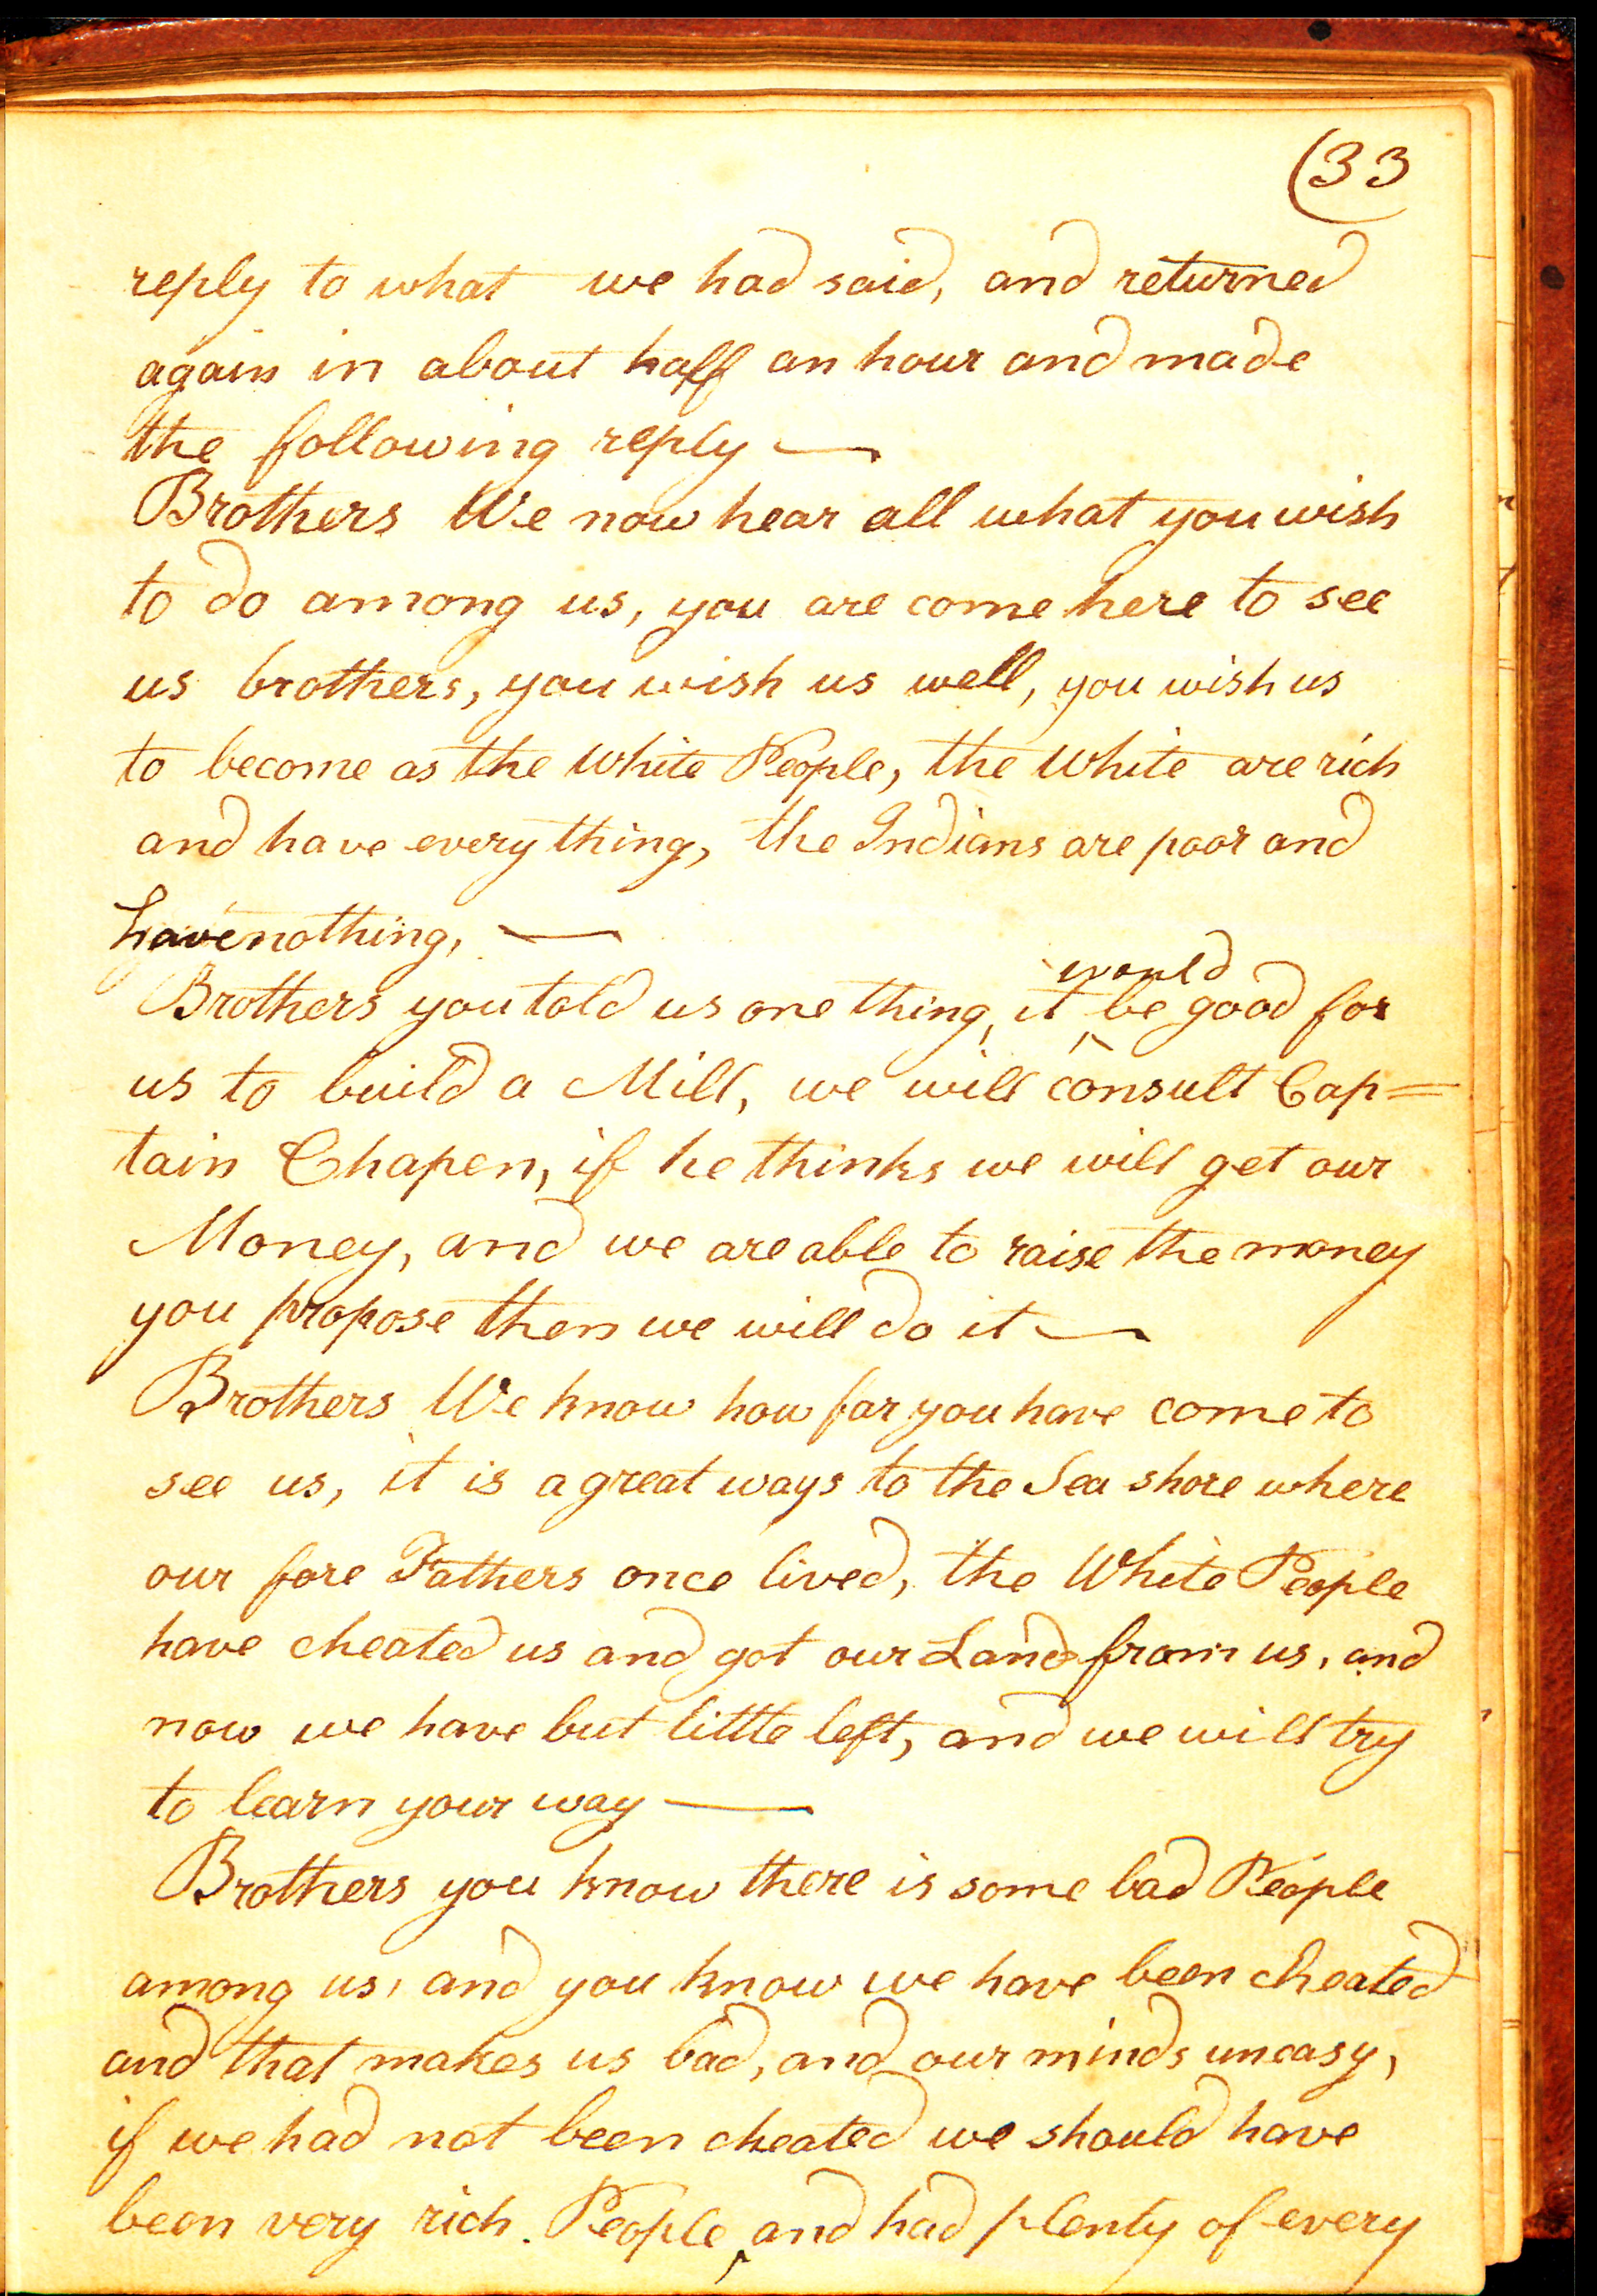 (33
reply to what we had said, and returned
again in about half an hour and made
the following reply —
Brothers We now hear all what you wish
to do among us, you are come here to see
us brothers, you wish us well, you wish us
to become as the White People, the White are rich
and have every thing, the Indians are poor and
have nothing, —
would
Brothers you told us one thing, it ‸ be good for
us to build a Mill, we will consult Cap=
tain Chapen, if he thinks we will get our
Money, and we are able to raise the money
you propose then we will do it —
Brothers We know how far you have come to
see us, it is a great ways to the Sea shore where
our fore Fathers once lived, the White People
have cheated us and got our Land from us, and
now we have but little left, and we will try
to learn your way —
Brothers you know there is some bad People
among us, and you know we have been cheated
and that makes us bad, and our minds uneasy,
if we had not been cheated we should have
been very rich. People, and had plenty of every